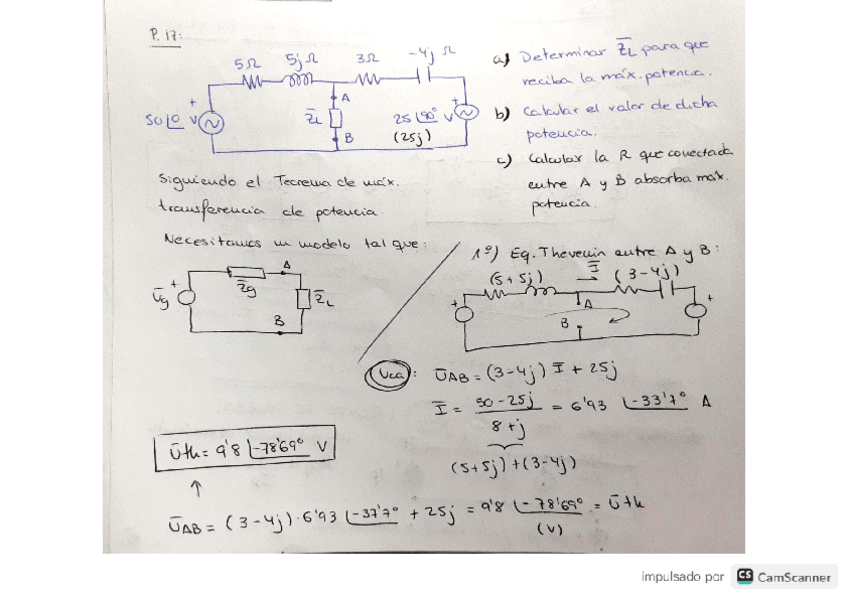 P. 17:
5Ω 5j Ω 3Ω -4j Ω
50∟0 V
+
A
Z̄L
B
25∟90° V
(25j)
+
a) Determinar Z̄L para que
reciba la máx. potencia.
b) Calcular el valor de dicha
potencia.
c) Calcular la R que conectada
entre A y B absorba máx.
potencia.
Siguiendo el Teorema de máx.
transferencia de potencia
Necesitamos un modelo tal que:
Ūg
+
Z̄g
A
Z̄L
B
1º) Eq. Thevenin entre A y B:
(5+5j) Ī (3-4j)
+
A
B
+
Uca: ŪAB = (3-4j) Ī + 25j
Ī = 50-25j / 8+j = 6'93 ∟-33'7° A
(5+5j)+(3-4j)
Ūth = 9'8 ∟-78'69° V
ŪAB = (3-4j)·6'93 ∟-37'7° + 25j = 9'8 ∟-78'69° = Ūth
(V)
impulsado por CS CamScanner